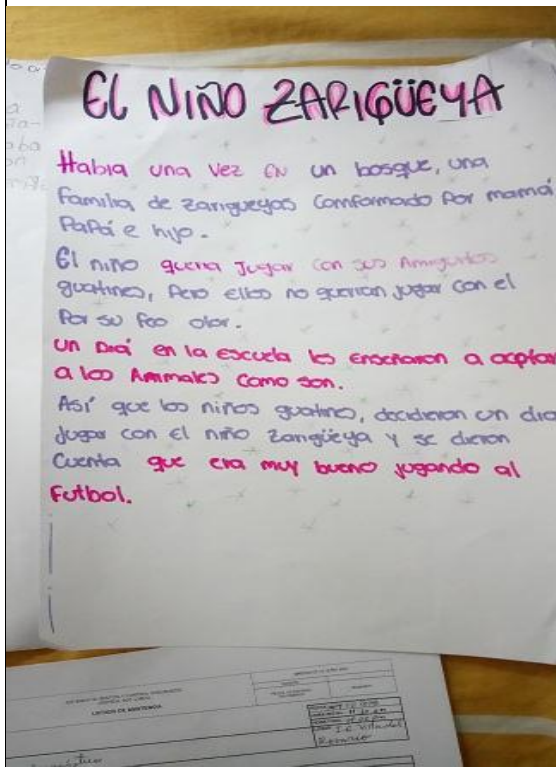 EL NIÑO ZARIGÜEYA
Habia una vez en un bosque, una
familia de zarigueyas Conformado Por mamá
PaPá e hijo.
El niño queria Jugar con sus Amiguitos
guatines, Pero ellos no querian jugar con el
Por su feo olor.
un Diá en la escuela les enseñaron a aceptar
a los Animales Como son.
Así que los niños guatines, decidieron un dia
Jugar con El niño zarigüeya y se dieron
Cuenta que era muy bueno jugando al
Futbol.
LISTADO DE ASISTENCIA